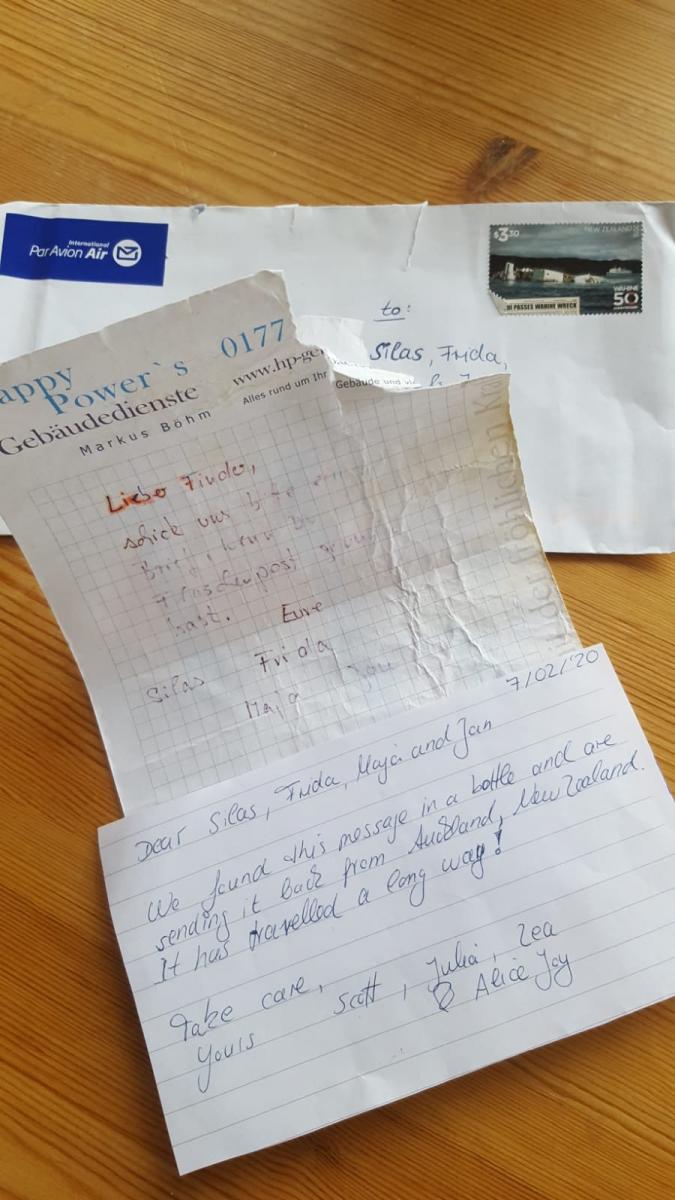 International
Par Avion Air
$3.30
NEW ZEALAND
PASSES WAHINE WRECK
WAHINE
50
to:
Silas, Frida,
appy
Power`s 0177
Gebäudedienste
www.hp-ge
Markus Böhm
Alles rund um Ihr Gebäude und
Liebe Finder,
schick uns
Brief, wenn
Flaschenpost
hast.
Eure
Silas Frida
Maja Jan
7/02/20
Dear Silas, Frida, Maja and Jan
We found this message in a bottle and are
sending it back from Auckland, New Zealand.
It has travelled a long way!
Take care,
Yours Scott, Julia, Zea
& Alice Joy